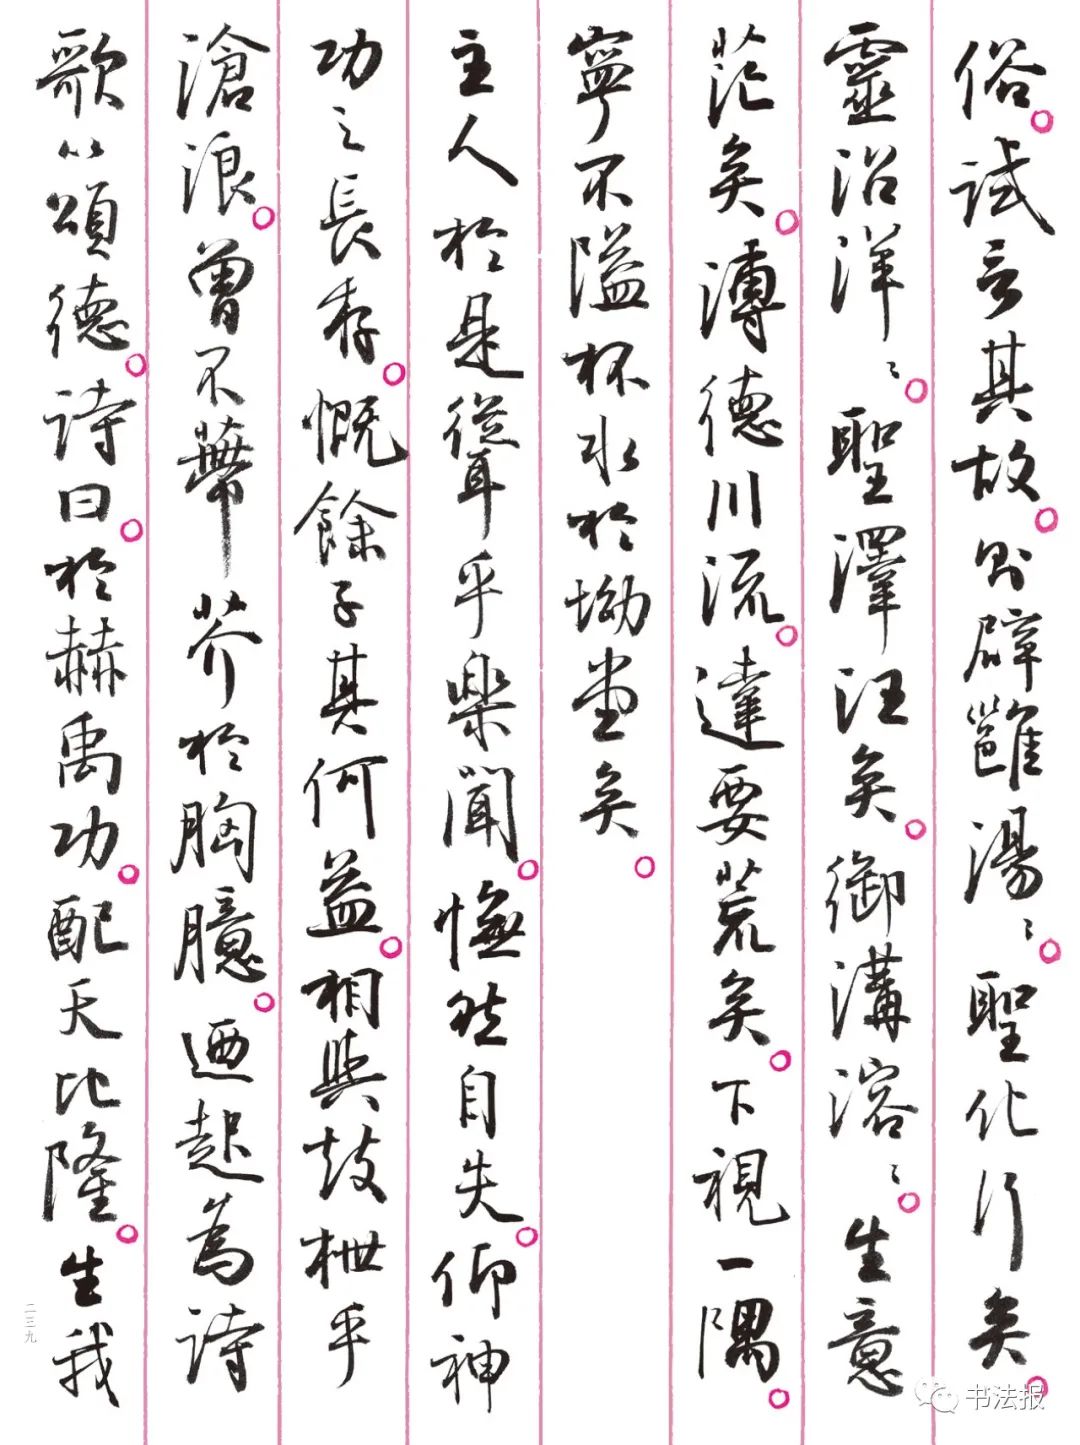 俗。試言其故。則辟雝湯〻。聖化行矣。
靈沼洋〻。聖澤汪矣。御溝溶〻。生意
茫矣。溥德川流。達要荒矣。下視一隅。
寧不隘杯水於坳堂矣。
主人於是聳乎樂聞。憮然自失。仰神
功之長存。慨餘子其何益。相與鼓枻乎
滄浪。曾不蔕芥於胸臆。迺起為詩
歌以頌德。詩曰。於赫禹功。配天比隆。生我
二三九
书法报